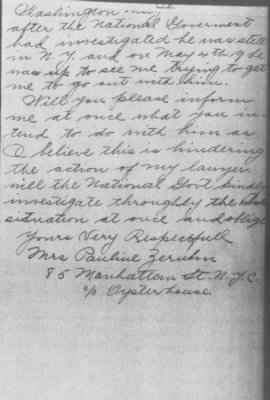 Washington
after the National Goverment
had investigated he was still
in N.Y. and on May 4th 9 he
was up to see me trying to get
me to go out with him.
Will you please inform
me at once what you in-
tend to do with him as
I believe this is hindering
the action of my lawyer
will the National Govt kindly
investigate throughly the whole
situation at once and oblige
Yours Very Respectfull
Mrs Pauline
85 Manhattan St. N.Y.C.
c/o Oyster house